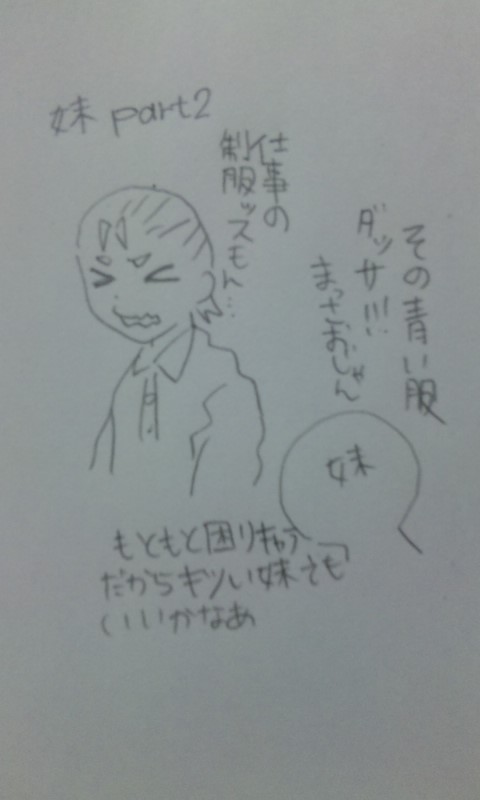 妹 part2
仕事の
制服ッスもん…
その青い服
ダッサ!!!
まっさおじゃん
妹
もともと困りキャラ
だからキツい妹でも
いいかなあ